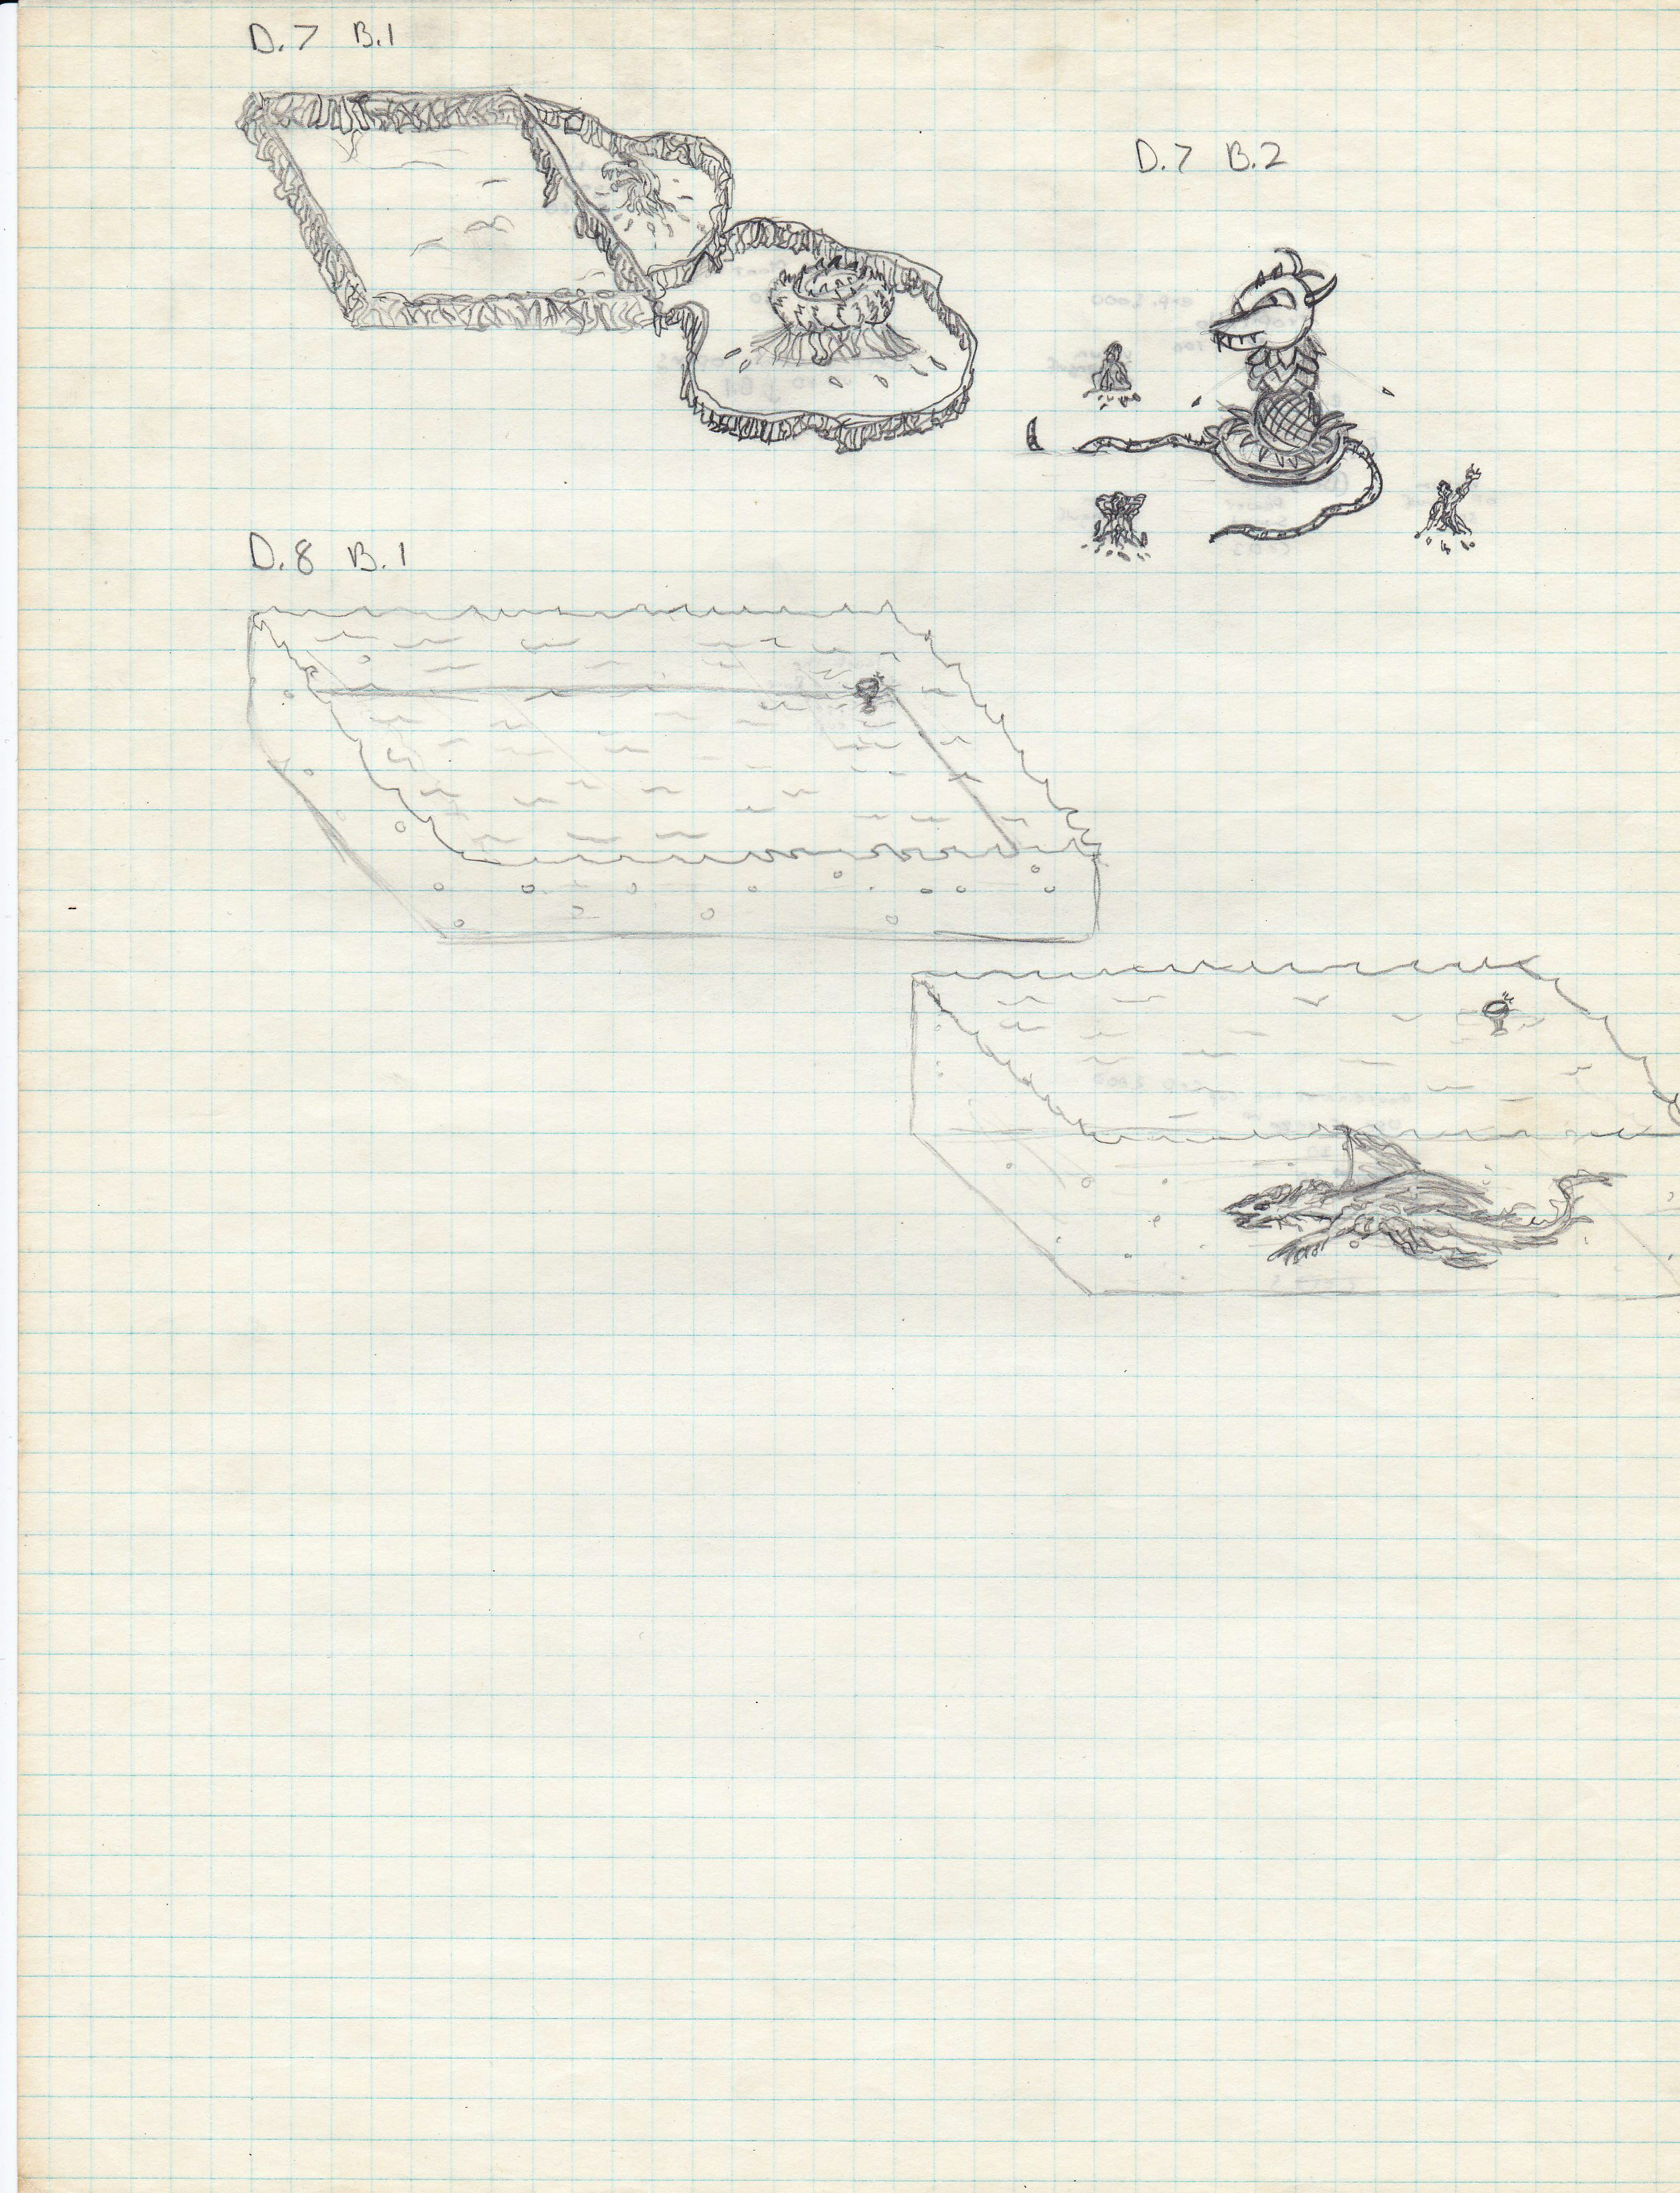 D.7 B.1
D.7 B.2
D.8 B.1